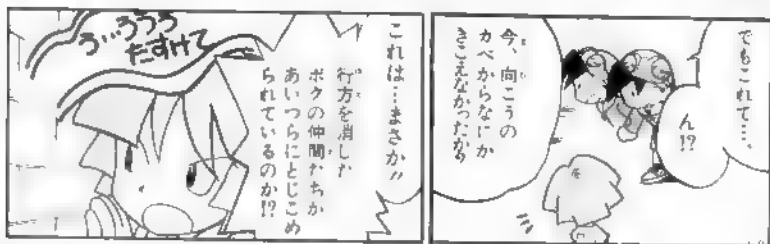 でもこれて…、
ん!?
今、向こうの
カベからなにか
きこえなかったか?
これは…まさか!!
行方を消した
ボクの仲間たちが
あいつらにとじこめ
られているのか!?
う…ううう
たすけて